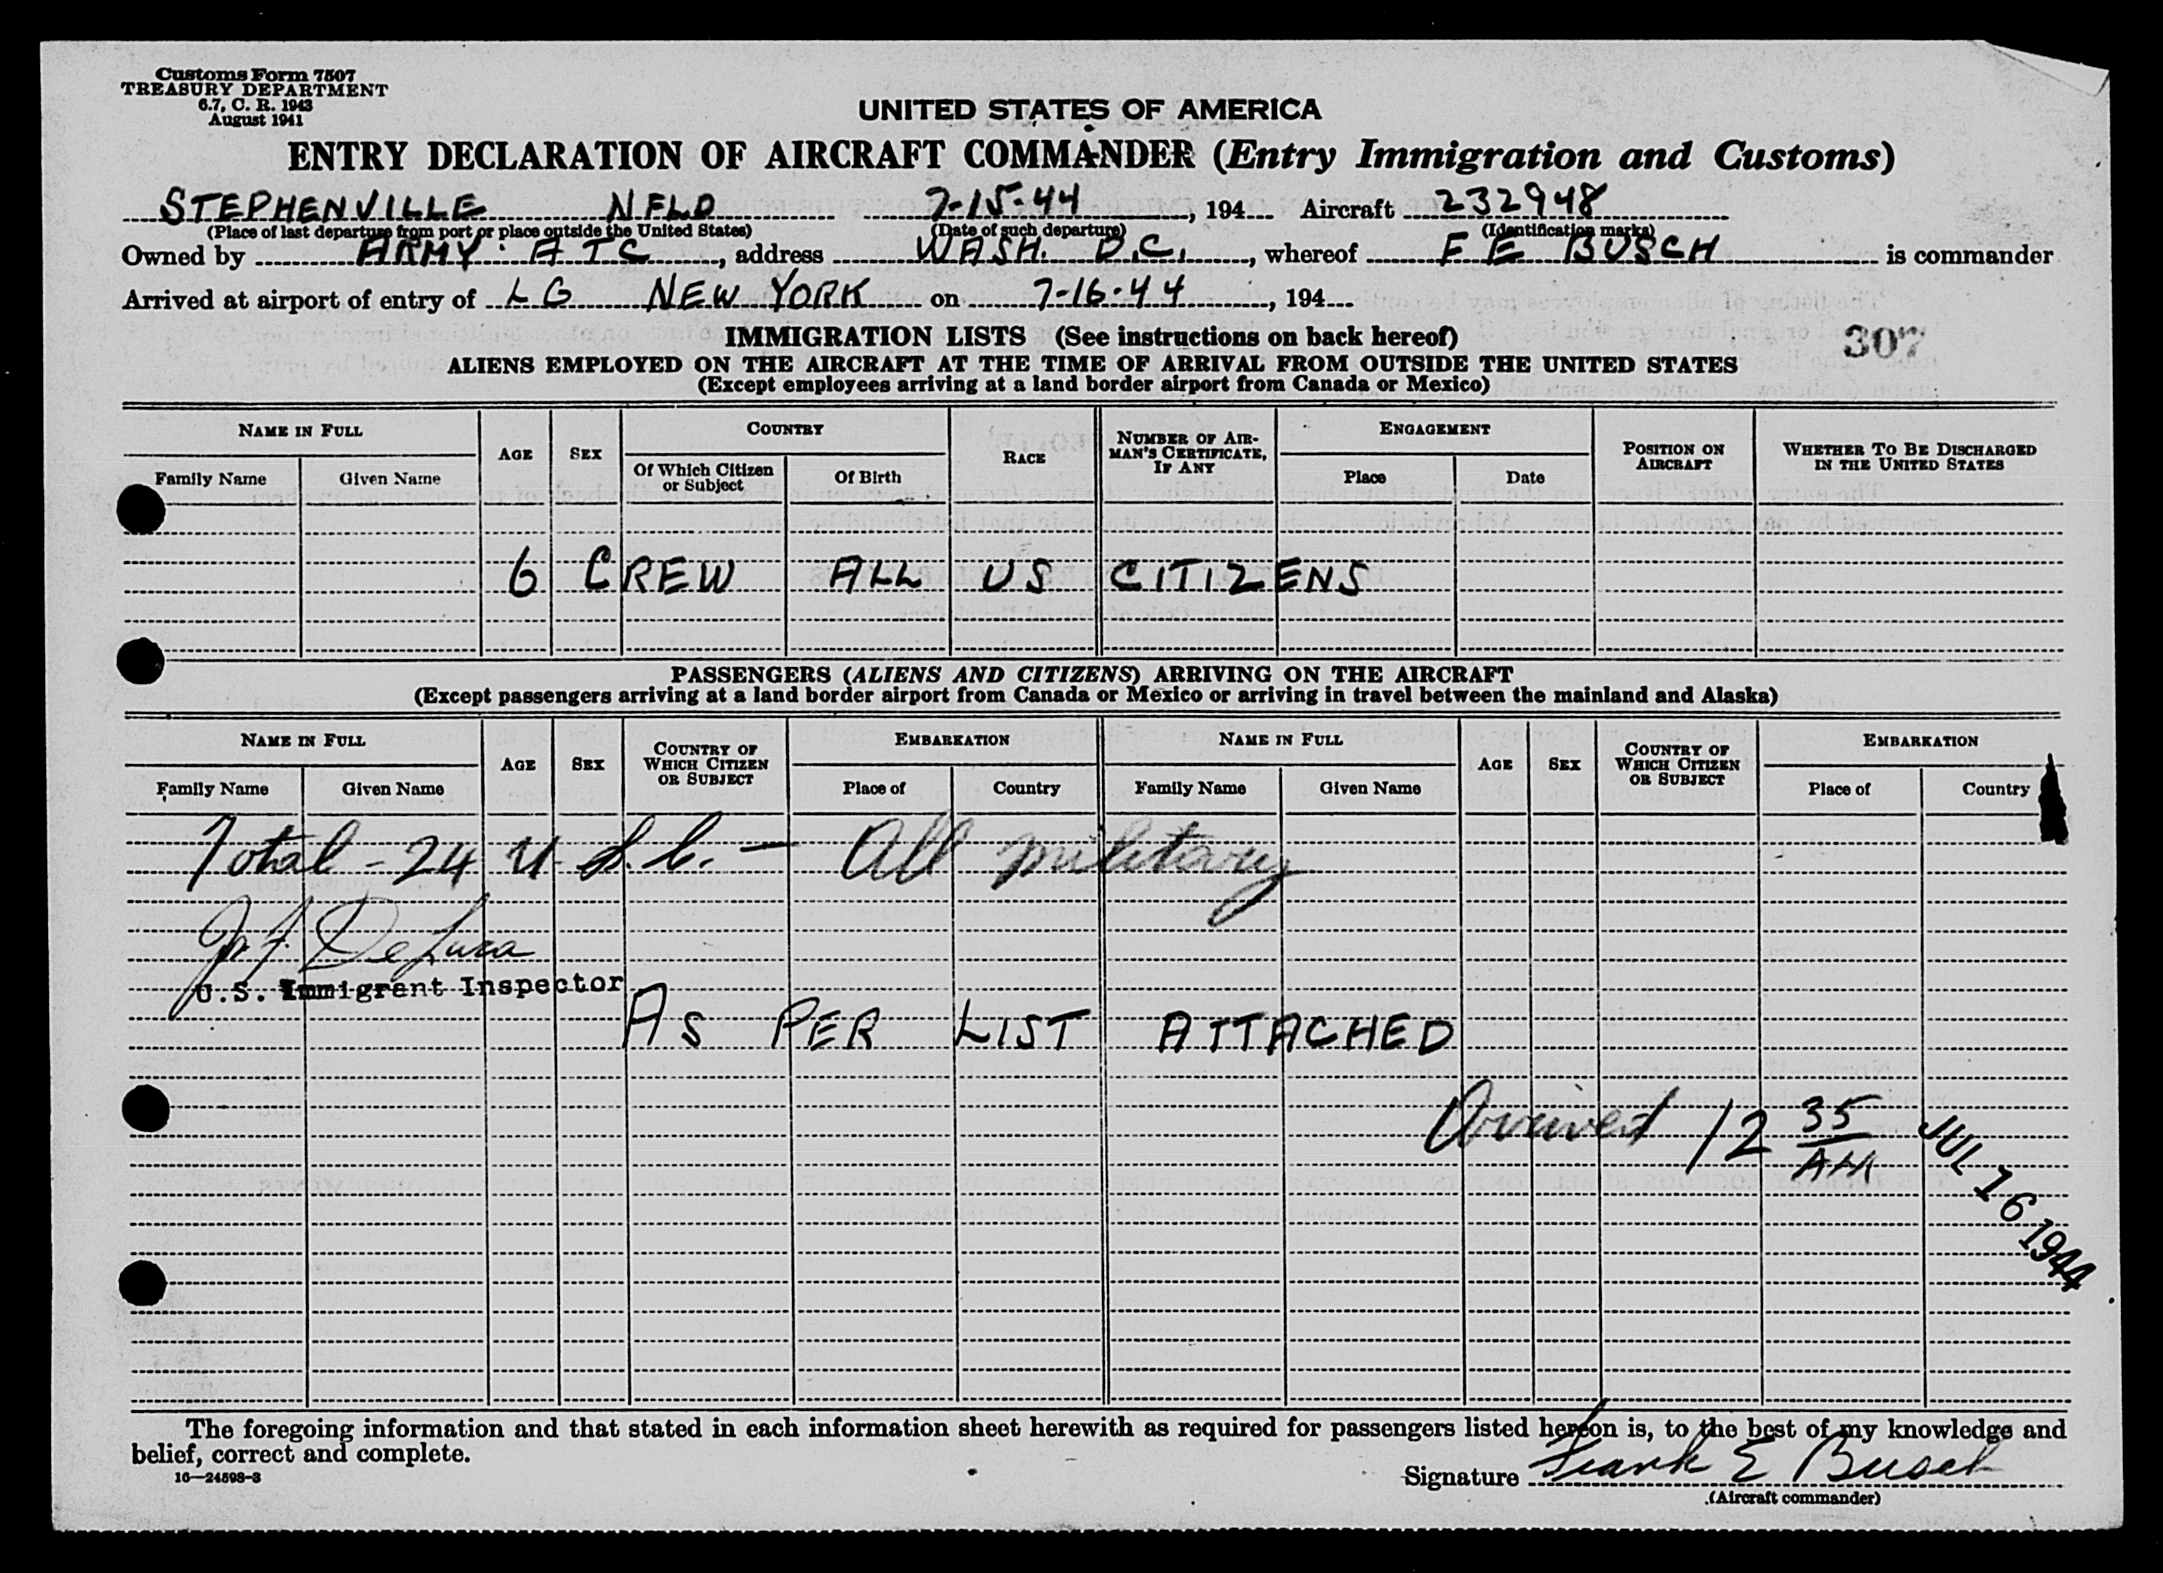 Customs Form 7507
TREASURY DEPARTMENT
6.7, C. R. 1943
August 1941
UNITED STATES OF AMERICA
ENTRY DECLARATION OF AIRCRAFT COMMANDER (Entry Immigration and Customs)
STEPHENVILLE NFLD 7-15-44, 194 Aircraft 232948
(Place of last departure from port or place outside the United States) (Date of such departure) (Identification marks)
Owned by ARMY - ATC, address WASH. D.C., whereof F E BUSCH is commander
Arrived at airport of entry of LG NEW YORK on 7-16-44, 194
IMMIGRATION LISTS (See instructions on back hereof)
307
ALIENS EMPLOYED ON THE AIRCRAFT AT THE TIME OF ARRIVAL FROM OUTSIDE THE UNITED STATES
(Except employees arriving at a land border airport from Canada or Mexico)
NAME IN FULL AGE SEX COUNTRY RACE NUMBER OF AIRMAN'S CERTIFICATE, IF ANY ENGAGEMENT POSITION ON AIRCRAFT WHETHER TO BE DISCHARGED IN THE UNITED STATES
Family Name Given Name Of Which Citizen or Subject Of Birth Place Date
6 CREW ALL US CITIZENS
PASSENGERS (ALIENS AND CITIZENS) ARRIVING ON THE AIRCRAFT
(Except passengers arriving at a land border airport from Canada or Mexico or arriving in travel between the mainland and Alaska)
NAME IN FULL AGE SEX COUNTRY OF WHICH CITIZEN OR SUBJECT EMBARKATION NAME IN FULL AGE SEX COUNTRY OF WHICH CITIZEN OR SUBJECT EMBARKATION
Family Name Given Name Place of Country Family Name Given Name Place of Country
Total - 24 U.S.C. - All military
J. F. DeLuca
U.S. Immigrant Inspector
AS PER LIST ATTACHED
Arrived 12 35 AM
JUL 16 1944
The foregoing information and that stated in each information sheet herewith as required for passengers listed hereon is, to the best of my knowledge and
belief, correct and complete.
16—24598-3
Signature Frank E Busch
(Aircraft commander)